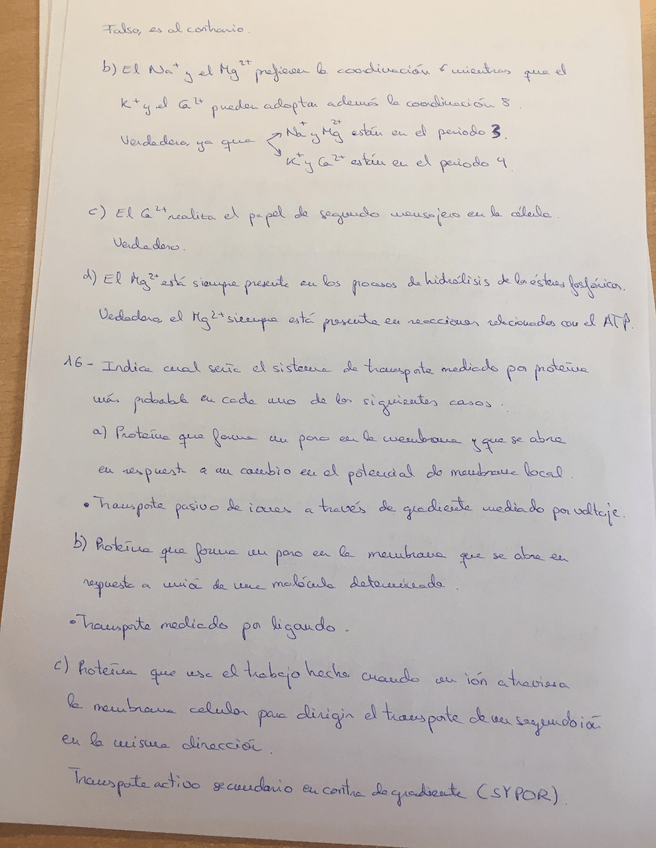 Falso, es al contrario.
b) El Na⁺ y el Mg²⁺ prefieren la coordinación 6 mientras que el
K⁺ y el Ca²⁺ pueden adoptar además la coordinación 8.
Verdadera, ya que Na⁺ y Mg²⁺ están en el periodo 3.
K⁺ y Ca²⁺ están en el periodo 4
c) El Ca²⁺ realiza el papel de segundo mensajero en la célula.
Verdadero.
d) El Mg²⁺ está siempre presente en los procesos de hidrólisis de los ésteres fosfóricos.
Verdadera, el Mg²⁺ siempre está presente en reacciones relacionadas con el ATP.
16- Indica cual sería el sistema de transporte mediado por proteína
más probable en cada uno de los siguientes casos.
a) Proteína que forma un poro en la membrana y que se abre
en respuesta a un cambio en el potencial de membrana local.
• Transporte pasivo de iones a través de gradiente mediado por voltaje.
b) Proteína que forma un poro en la membrana que se abre en
respuesta a de una molécula determinada.
• Transporte mediado por ligando.
c) Proteína que usa el trabajo hecho cuando un ión atraviesa
la membrana celular para dirigir el transporte de un segundo ión
en la misma dirección.
Transporte activo secundario en contra de gradiente (SYPOR)